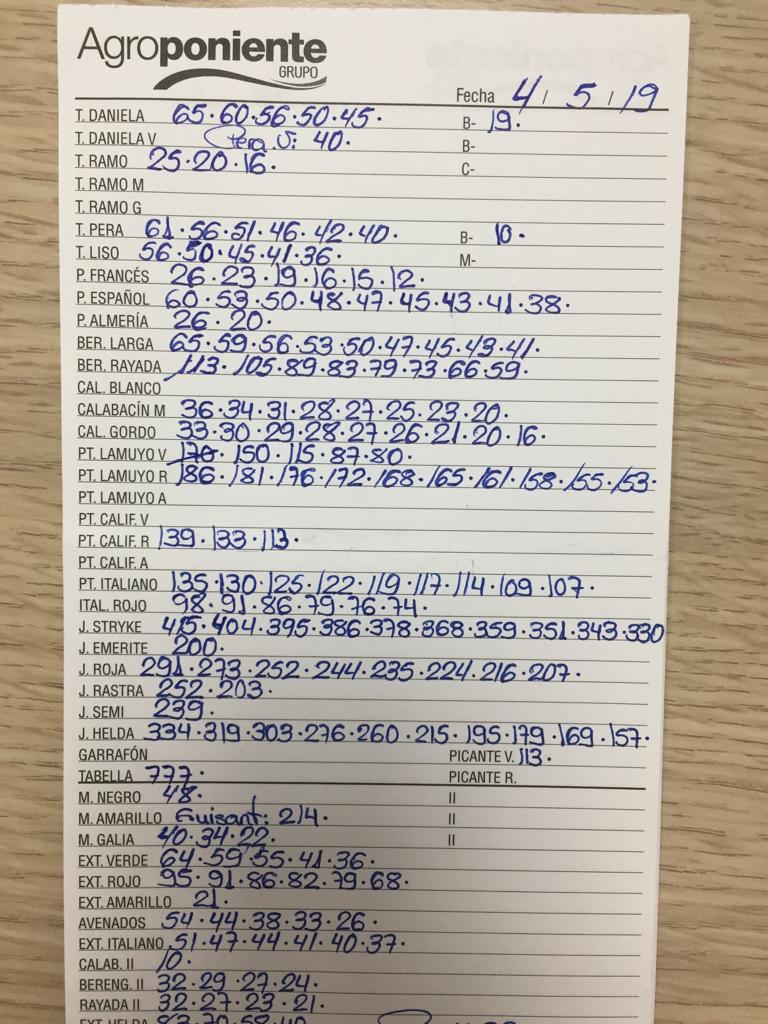 Agroponiente
GRUPO
Fecha 4 / 5 / 19
T. DANIELA 65·60·56·50·45· B- 19·
T. DANIELA V Pera V: 40· B-
T. RAMO 25·20·16· C-
T. RAMO M
T. RAMO G
T. PERA 61·56·51·46·42·40· B- 10·
T. LISO 56·50·45·41·36· M-
P. FRANCÉS 26·23·19·16·15·12·
P. ESPAÑOL 60·53·50·48·47·45·43·41·38·
P. ALMERÍA 26·20·
BER. LARGA 65·59·56·53·50·47·45·43·41·
BER. RAYADA 113·105·89·83·79·73·66·59·
CAL. BLANCO
CALABACÍN M 36·34·31·28·27·25·23·20·
CAL. GORDO 33·30·29·28·27·26·21·20·16·
PT. LAMUYO V 170·150·115·87·80·
PT. LAMUYO R 186·181·176·172·168·165·161·158·155·153·
PT. LAMUYO A
PT. CALIF. V
PT. CALIF. R 139·133·113·
PT. CALIF. A
PT. ITALIANO 135·130·125·122·119·117·114·109·107·
ITAL. ROJO 98·91·86·79·76·74·
J. STRYKE 415·404·395·386·378·368·359·351·343·330
J. EMERITE 200·
J. ROJA 291·273·252·244·235·224·216·207·
J. RASTRA 252·203·
J. SEMI 239·
J. HELDA 334·319·303·276·260·215·195·179·169·157·
GARRAFÓN PICANTE V. 113·
TABELLA 777· PICANTE R.
M. NEGRO 48· II
M. AMARILLO Guisant: 214· II
M. GALIA 40·34·22· II
EXT. VERDE 64·59·55·41·36·
EXT. ROJO 95·91·86·82·79·68·
EXT. AMARILLO 21·
AVENADOS 54·44·38·33·26·
EXT. ITALIANO 51·47·44·41·40·37·
CALAB. II 10·
BERENG. II 32·29·27·24·
RAYADA II 32·27·23·21·
EXT. HELDA